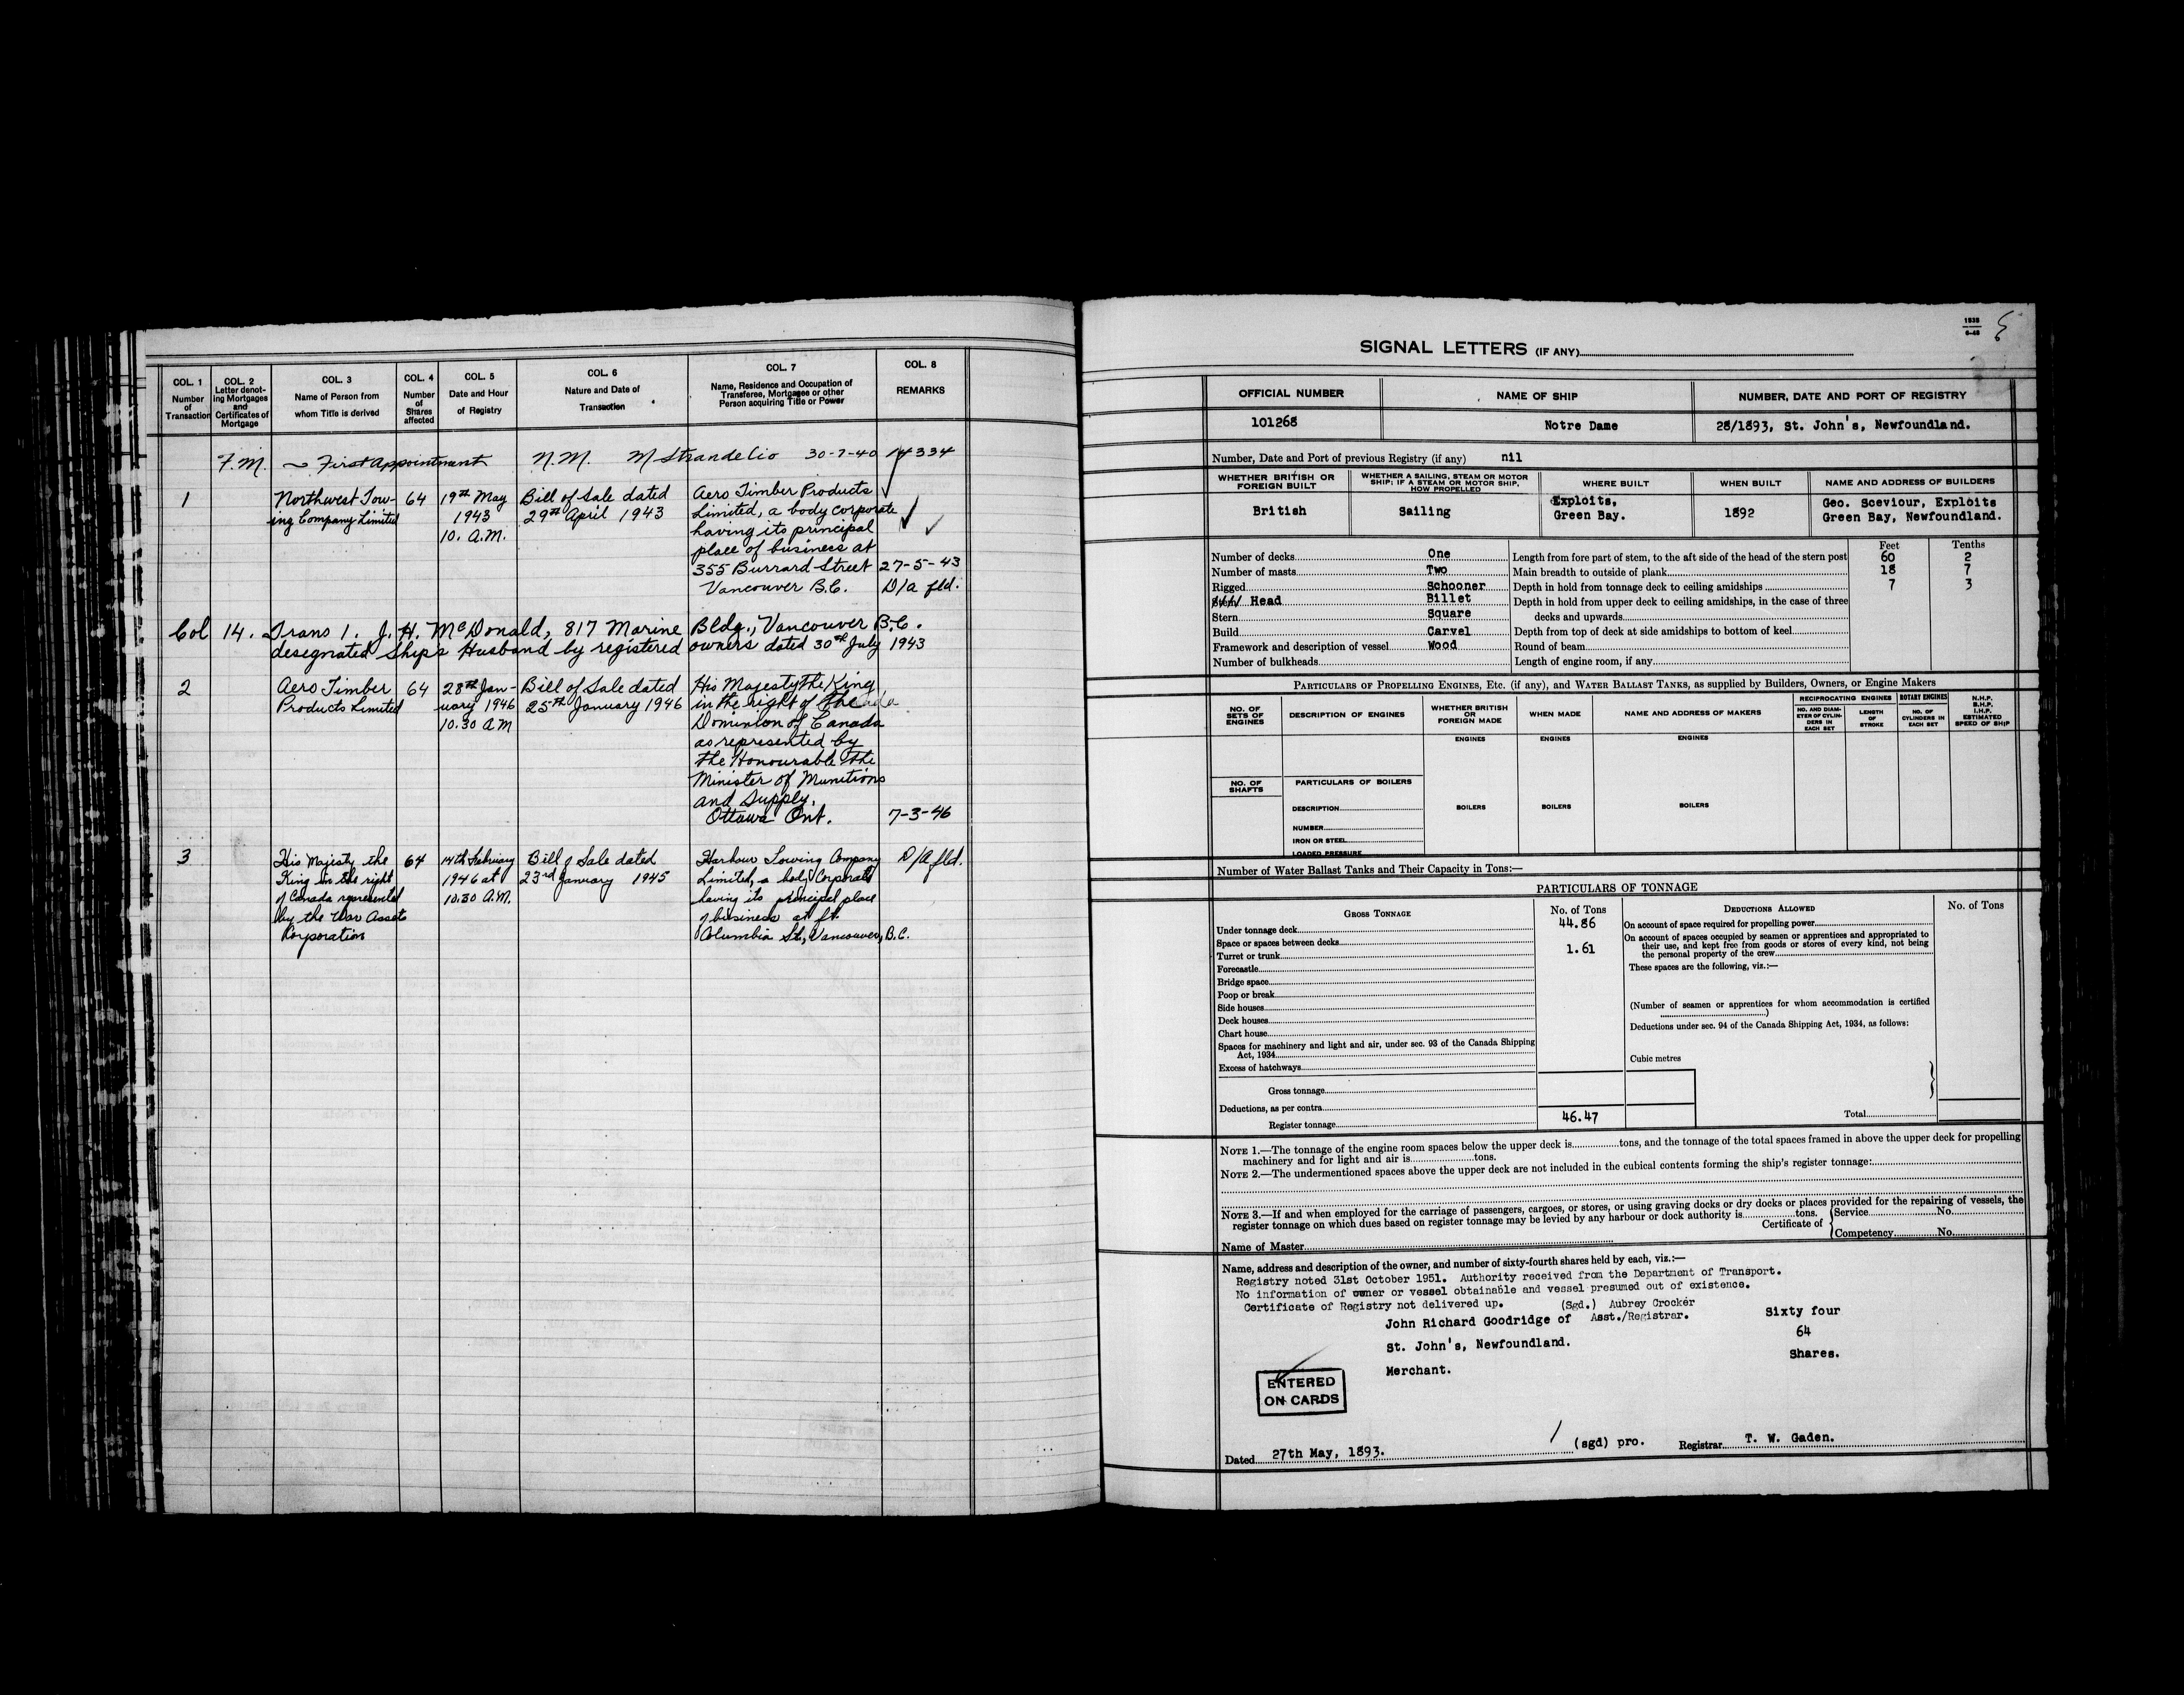 COL. 1
Number
of
Transaction
COL. 2
Letter denot-
ing Mortgages
and
Certificates of
Mortgage
COL. 3
Name of Person from
whom Title is derived
COL. 4
Number
of
Shares
affected
COL. 5
Date and Hour
of Registry
COL. 6
Nature and Date of
Transaction
COL. 7
Name, Residence and Occupation of
Transferee, Mortgagee or other
Person acquiring Title or Power
COL. 8
REMARKS
F.M. First Appointment N.M. M Strandelio 30-7-40 14334
1
Northwest Tow-
ing Company Limited
64
19th May
1943
10. A.M.
Bill of Sale dated
29th April 1943
Aero Timber Products
Limited, a body corporate
having its principal
place of business at
355 Burrard Street
Vancouver B.C.
27-5-43
D/a fld.
Col 14. Trans 1. J. H. McDonald, 817 Marine Bldg., Vancouver B.C.
designated Ships Husband by registered owners dated 30th July 1943
2
Aero Timber
Products Limited
64
28th Jan-
uary 1946
10.30 A.M
Bill of Sale dated
25th January 1946
His Majesty the King
in the right of the
Dominion of Canada
as represented by
the Honourable the
Minister of Munitions
and Supply,
Ottawa Ont.
7-3-46
3
His Majesty the
King in the right
of Canada represented
by the War Assets
Corporation
64
14th February
1946 at
10.30 A.M.
Bill of Sale dated
23rd January 1945
Harbour Towing Company
Limited, a body Corporate
having its principal place
of business at ft.
Columbia St., Vancouver, B.C.
D/A fld.
1535
6-45
SIGNAL LETTERS (IF ANY)
OFFICIAL NUMBER
NAME OF SHIP
NUMBER, DATE AND PORT OF REGISTRY
101268
Notre Dame
28/1893, St. John's, Newfoundland.
Number, Date and Port of previous Registry (if any) nil
WHETHER BRITISH OR
FOREIGN BUILT
WHETHER A SAILING, STEAM OR MOTOR
SHIP; IF A STEAM OR MOTOR SHIP,
HOW PROPELLED
WHERE BUILT
WHEN BUILT
NAME AND ADDRESS OF BUILDERS
British
Sailing
Exploits,
Green Bay.
1892
Geo. Sceviour, Exploits
Green Bay, Newfoundland.
Feet Tenths
Number of decks One
Number of masts Two
Rigged Schooner
Stem Head Billet
Stern Square
Build Carvel
Framework and description of vessel Wood
Number of bulkheads
Length from fore part of stem, to the aft side of the head of the stern post 60 2
Main breadth to outside of plank 18 7
Depth in hold from tonnage deck to ceiling amidships 7 3
Depth in hold from upper deck to ceiling amidships, in the case of three
decks and upwards
Depth from top of deck at side amidships to bottom of keel
Round of beam
Length of engine room, if any
PARTICULARS OF PROPELLING ENGINES, ETC. (if any), and WATER BALLAST TANKS, as supplied by Builders, Owners, or Engine Makers
NO. OF
SETS OF
ENGINES
DESCRIPTION OF ENGINES
WHETHER BRITISH
OR
FOREIGN MADE
WHEN MADE
NAME AND ADDRESS OF MAKERS
RECIPROCATING ENGINES
NO. AND DIAM-
ETER OF CYLIN-
DERS IN
EACH SET
LENGTH
OF
STROKE
ROTARY ENGINES
NO. OF
CYLINDERS IN
EACH SET
N.H.P.
B.H.P.
I.H.P.
ESTIMATED
SPEED OF SHIP
ENGINES ENGINES ENGINES
NO. OF
SHAFTS
PARTICULARS OF BOILERS
DESCRIPTION
NUMBER
IRON OR STEEL
LOADED PRESSURE
BOILERS BOILERS BOILERS
Number of Water Ballast Tanks and Their Capacity in Tons:—
PARTICULARS OF TONNAGE
GROSS TONNAGE
No. of Tons
Under tonnage deck 44.86
Space or spaces between decks
Turret or trunk 1.61
Forecastle
Bridge space
Poop or break
Side houses
Deck houses
Chart house
Spaces for machinery and light and air, under sec. 93 of the Canada Shipping
Act, 1934
Excess of hatchways
Gross tonnage
Deductions, as per contra
Register tonnage 46.47
DEDUCTIONS ALLOWED
No. of Tons
On account of space required for propelling power
On account of spaces occupied by seamen or apprentices and appropriated to
their use, and kept free from goods or stores of every kind, not being
the personal property of the crew
These spaces are the following, viz.:—
(Number of seamen or apprentices for whom accommodation is certified
)
Deductions under sec. 94 of the Canada Shipping Act, 1934, as follows:
Cubic metres
Total
NOTE 1.—The tonnage of the engine room spaces below the upper deck is tons, and the tonnage of the total spaces framed in above the upper deck for propelling
machinery and for light and air is tons.
NOTE 2.—The undermentioned spaces above the upper deck are not included in the cubical contents forming the ship's register tonnage:
NOTE 3.—If and when employed for the carriage of passengers, cargoes, or stores, or using graving docks or dry docks or places provided for the repairing of vessels, the
register tonnage on which dues based on register tonnage may be levied by any harbour or dock authority is tons.
Certificate of
Service No.
Competency No.
Name of Master
Name, address and description of the owner, and number of sixty-fourth shares held by each, viz.:—
Registry noted 31st October 1951. Authority received from the Department of Transport.
No information of owner or vessel obtainable and vessel presumed out of existence.
Certificate of Registry not delivered up. (Sgd.) Aubrey Crocker
Asst./Registrar.
John Richard Goodridge of
St. John's, Newfoundland.
Merchant.
Sixty four
64
Shares.
ENTERED
ON CARDS
Dated 27th May, 1893. (sgd) pro. Registrar T. W. Gaden.